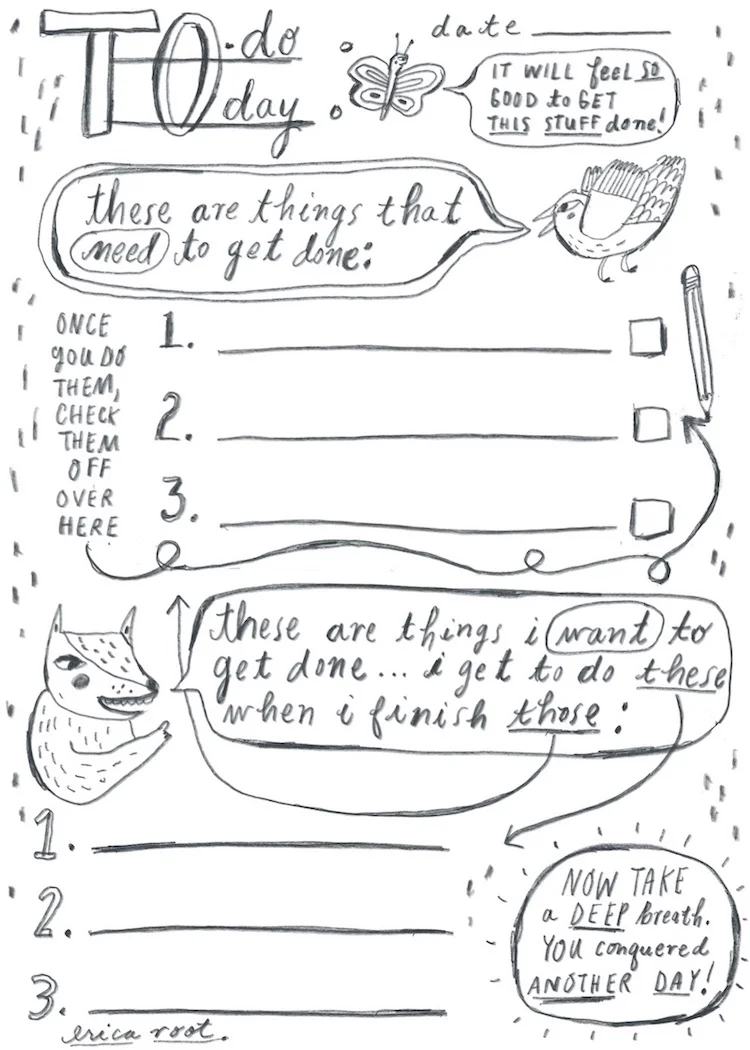 TO.do
day
date
IT WILL feel SO
GOOD to GET
THIS STUFF done!
these are things that
need to get done:
ONCE
YOU DO
THEM,
CHECK
THEM
OFF
OVER
HERE
1.
2.
3.
these are things i want to
get done... i get to do these
when i finish those:
1.
2.
3.
NOW TAKE
a DEEP breath.
YOU conquered
ANOTHER DAY!
erica root.